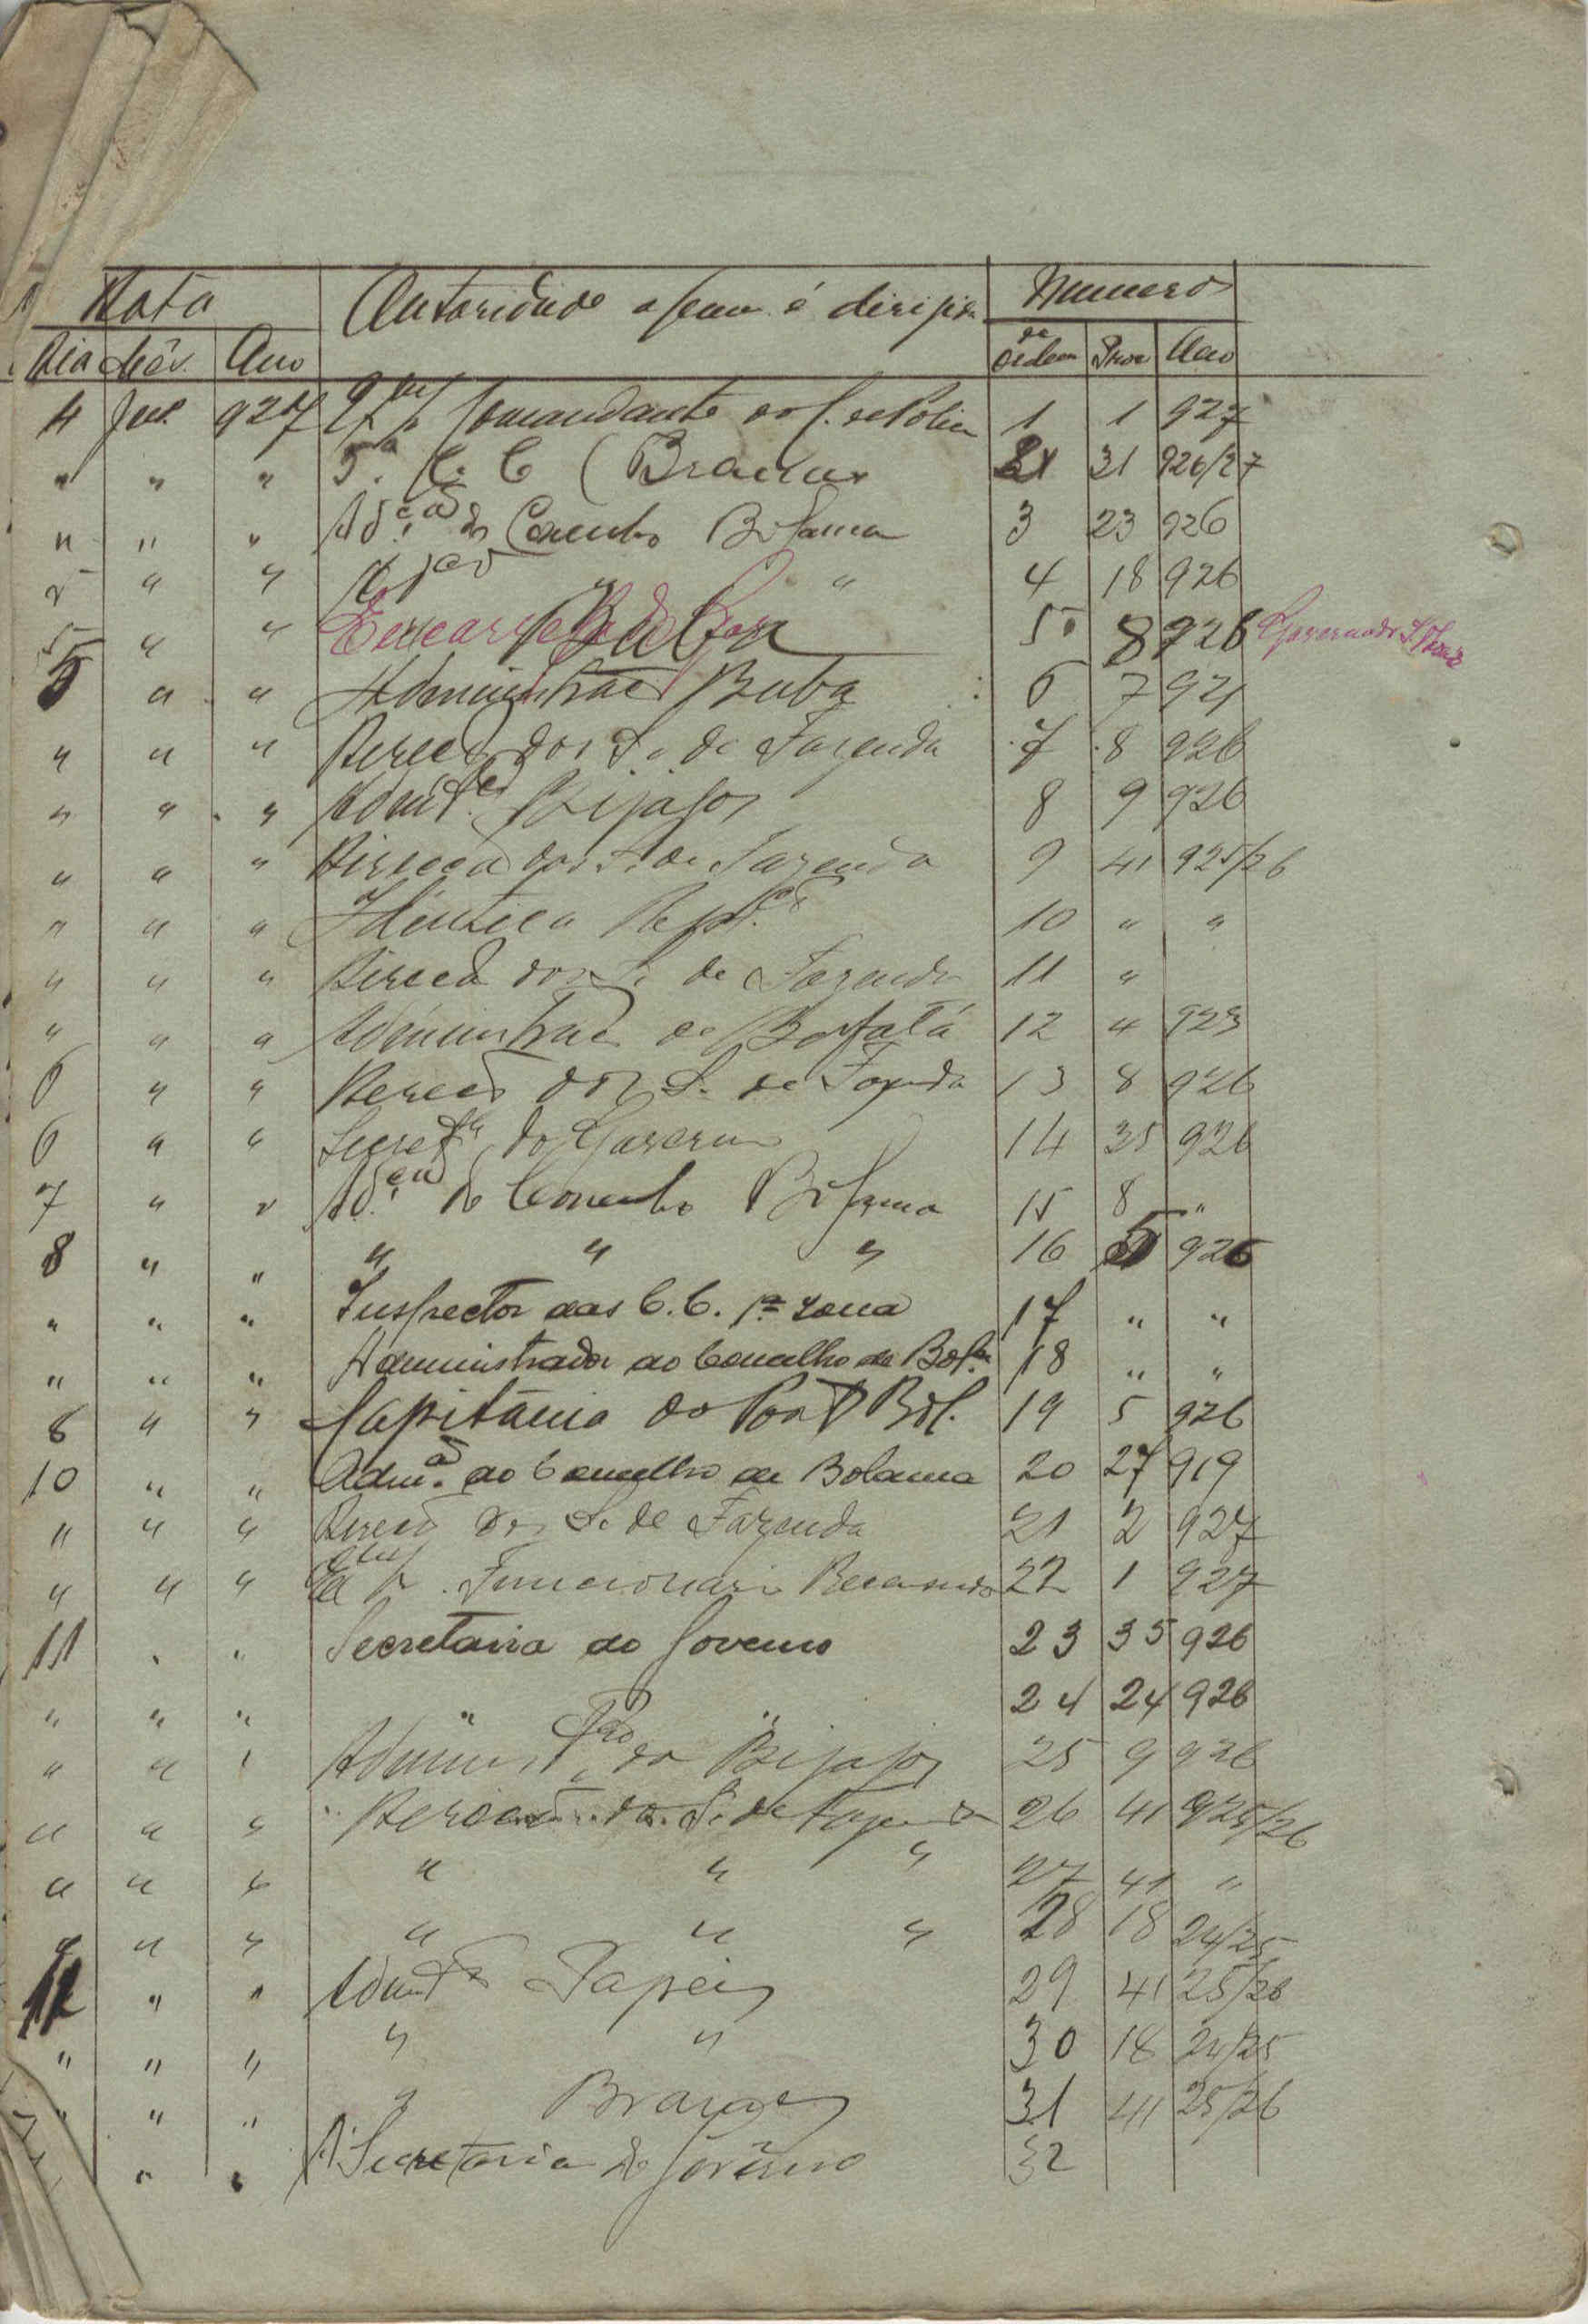 Data Autoridade a quem é dirigida Numero
Dia Mês Ano de Ordem Proc Ano
4 Jul. 927 Comandante do C. de Policia 1 1 927
" " " 5.ª C. C (Brames 31 926/27
" " " Ad. do Concelho Bolama 3 23 926
5 " " " " 4 18 926
5 " " 5 8 926 Governador
5 " " Administrac Buba 6 7 921
" " " Direcção dos S. de Fazenda 7 8 926
" " " Bijagos 8 9 926
" " " Direcção dos S. de Fazenda 9 41 925/26
" " " Identica Rep. 10 " "
" " " Direcção dos S. de Fazenda 11 "
" " " Administrac de Bafatá 12 4 923
6 " " Direcção dos S. de Fazenda 13 8 926
6 " " Secret.ª do Governo 14 35 926
7 " " Ad. do Concelho Bolama 15 8 "
8 " " " " " 16 5 926
" " " Inspector das C.C. 1ª zona 17 " "
" " " Administrador do Concelho de Bol.ª 18 " "
8 " " Capitania do Porto Bol. 19 5 926
10 " " Adm.or do Concelho de Bolama 20 27 919
" " " Direcção dos S. de Fazenda 21 2 927
" " " Funcionario 22 1 927
11 " " Secretaria do Governo 23 35 926
" " " " " 24 24 926
" " " Administ. do Bijagos 25 9 926
" " " Direcção dos S. de Fazenda 26 41 925/26
" " " " " " 27 41 "
" " " " " " 28 18 24/25
12 " " Papeis 29 41 25/26
" " " " " 30 18 24/25
" " " " Brames 31 41 25/26
" " Secretaria do Govêrno 32